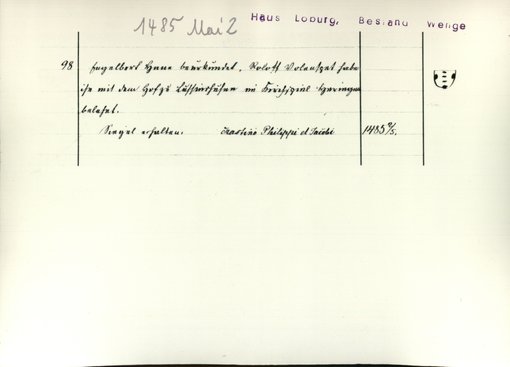 1485 Mai 2
Haus Loburg, Bestand Wenge
98 Engelbert Hane beurkundet, Roloff Volenspet habe
ihn mit dem Hofe im Kirchspiel Heringen
belehnt.
Siegel erhalten. Crastino Philippi et Jacobi 1485 2/5.